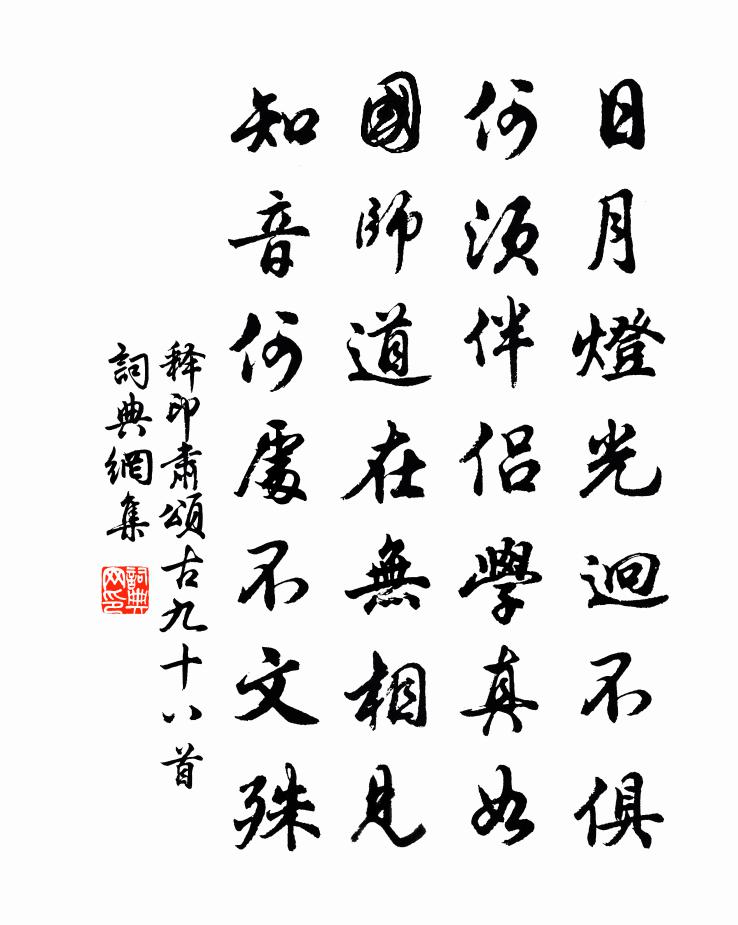 日月燈光迥不俱
何須伴侶學真如
國師道在無相見
知音何處不文殊
释印肅頌古九十八首
詞典網集
詞典网印